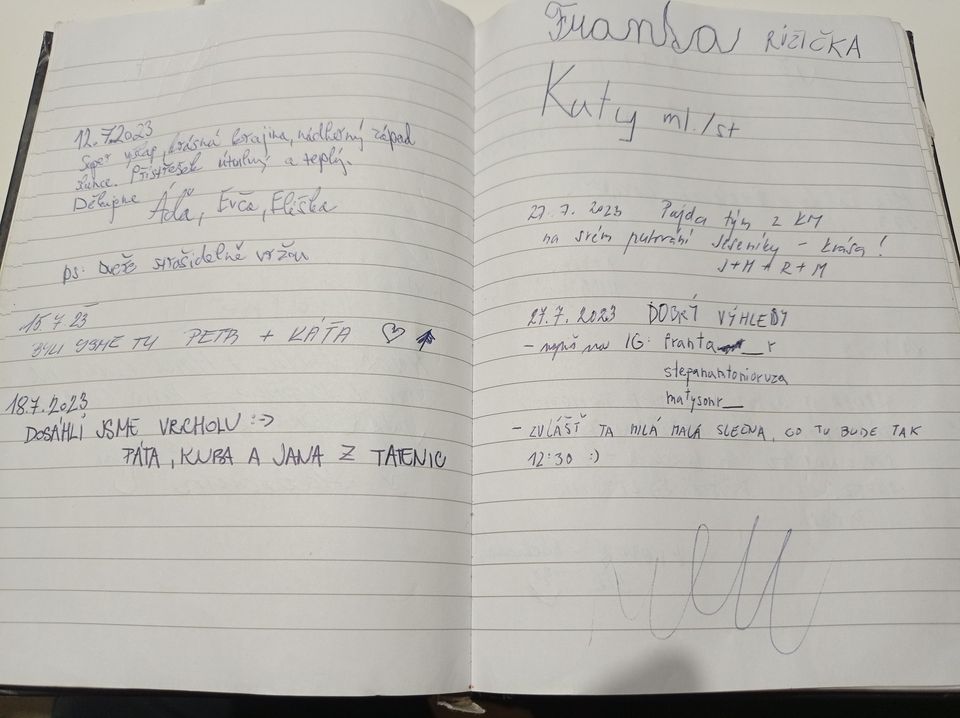 12.7.2023
Super výšlap, krásná krajina, nádherný západ
slunce. Přístřešek útulný a teplý.
Děkujeme Áďa, Evča, Eliška
ps: dveře strašidelně vržou
15.7.23
BYLI JSME TU PETR + KÁŤA
18.7.2023
DOSÁHLI JSME VRCHOLU :->
PÁTA, KUBA A JANA Z TATENIC
Franta RIŽIČKA
Katy ml./st
27.7.2023 Pajda tým z KM
na svém putování Jeseníky - krása!
J+M+R+M
27.7.2023 DOBRÝ VÝHLEDY
- napiš na IG: franta_r
stepanantonioruza
matysonr_
- ZVLÁŠŤ TA MILÁ MALÁ SLEČNA, CO TU BUDE TAK
12:30 :)